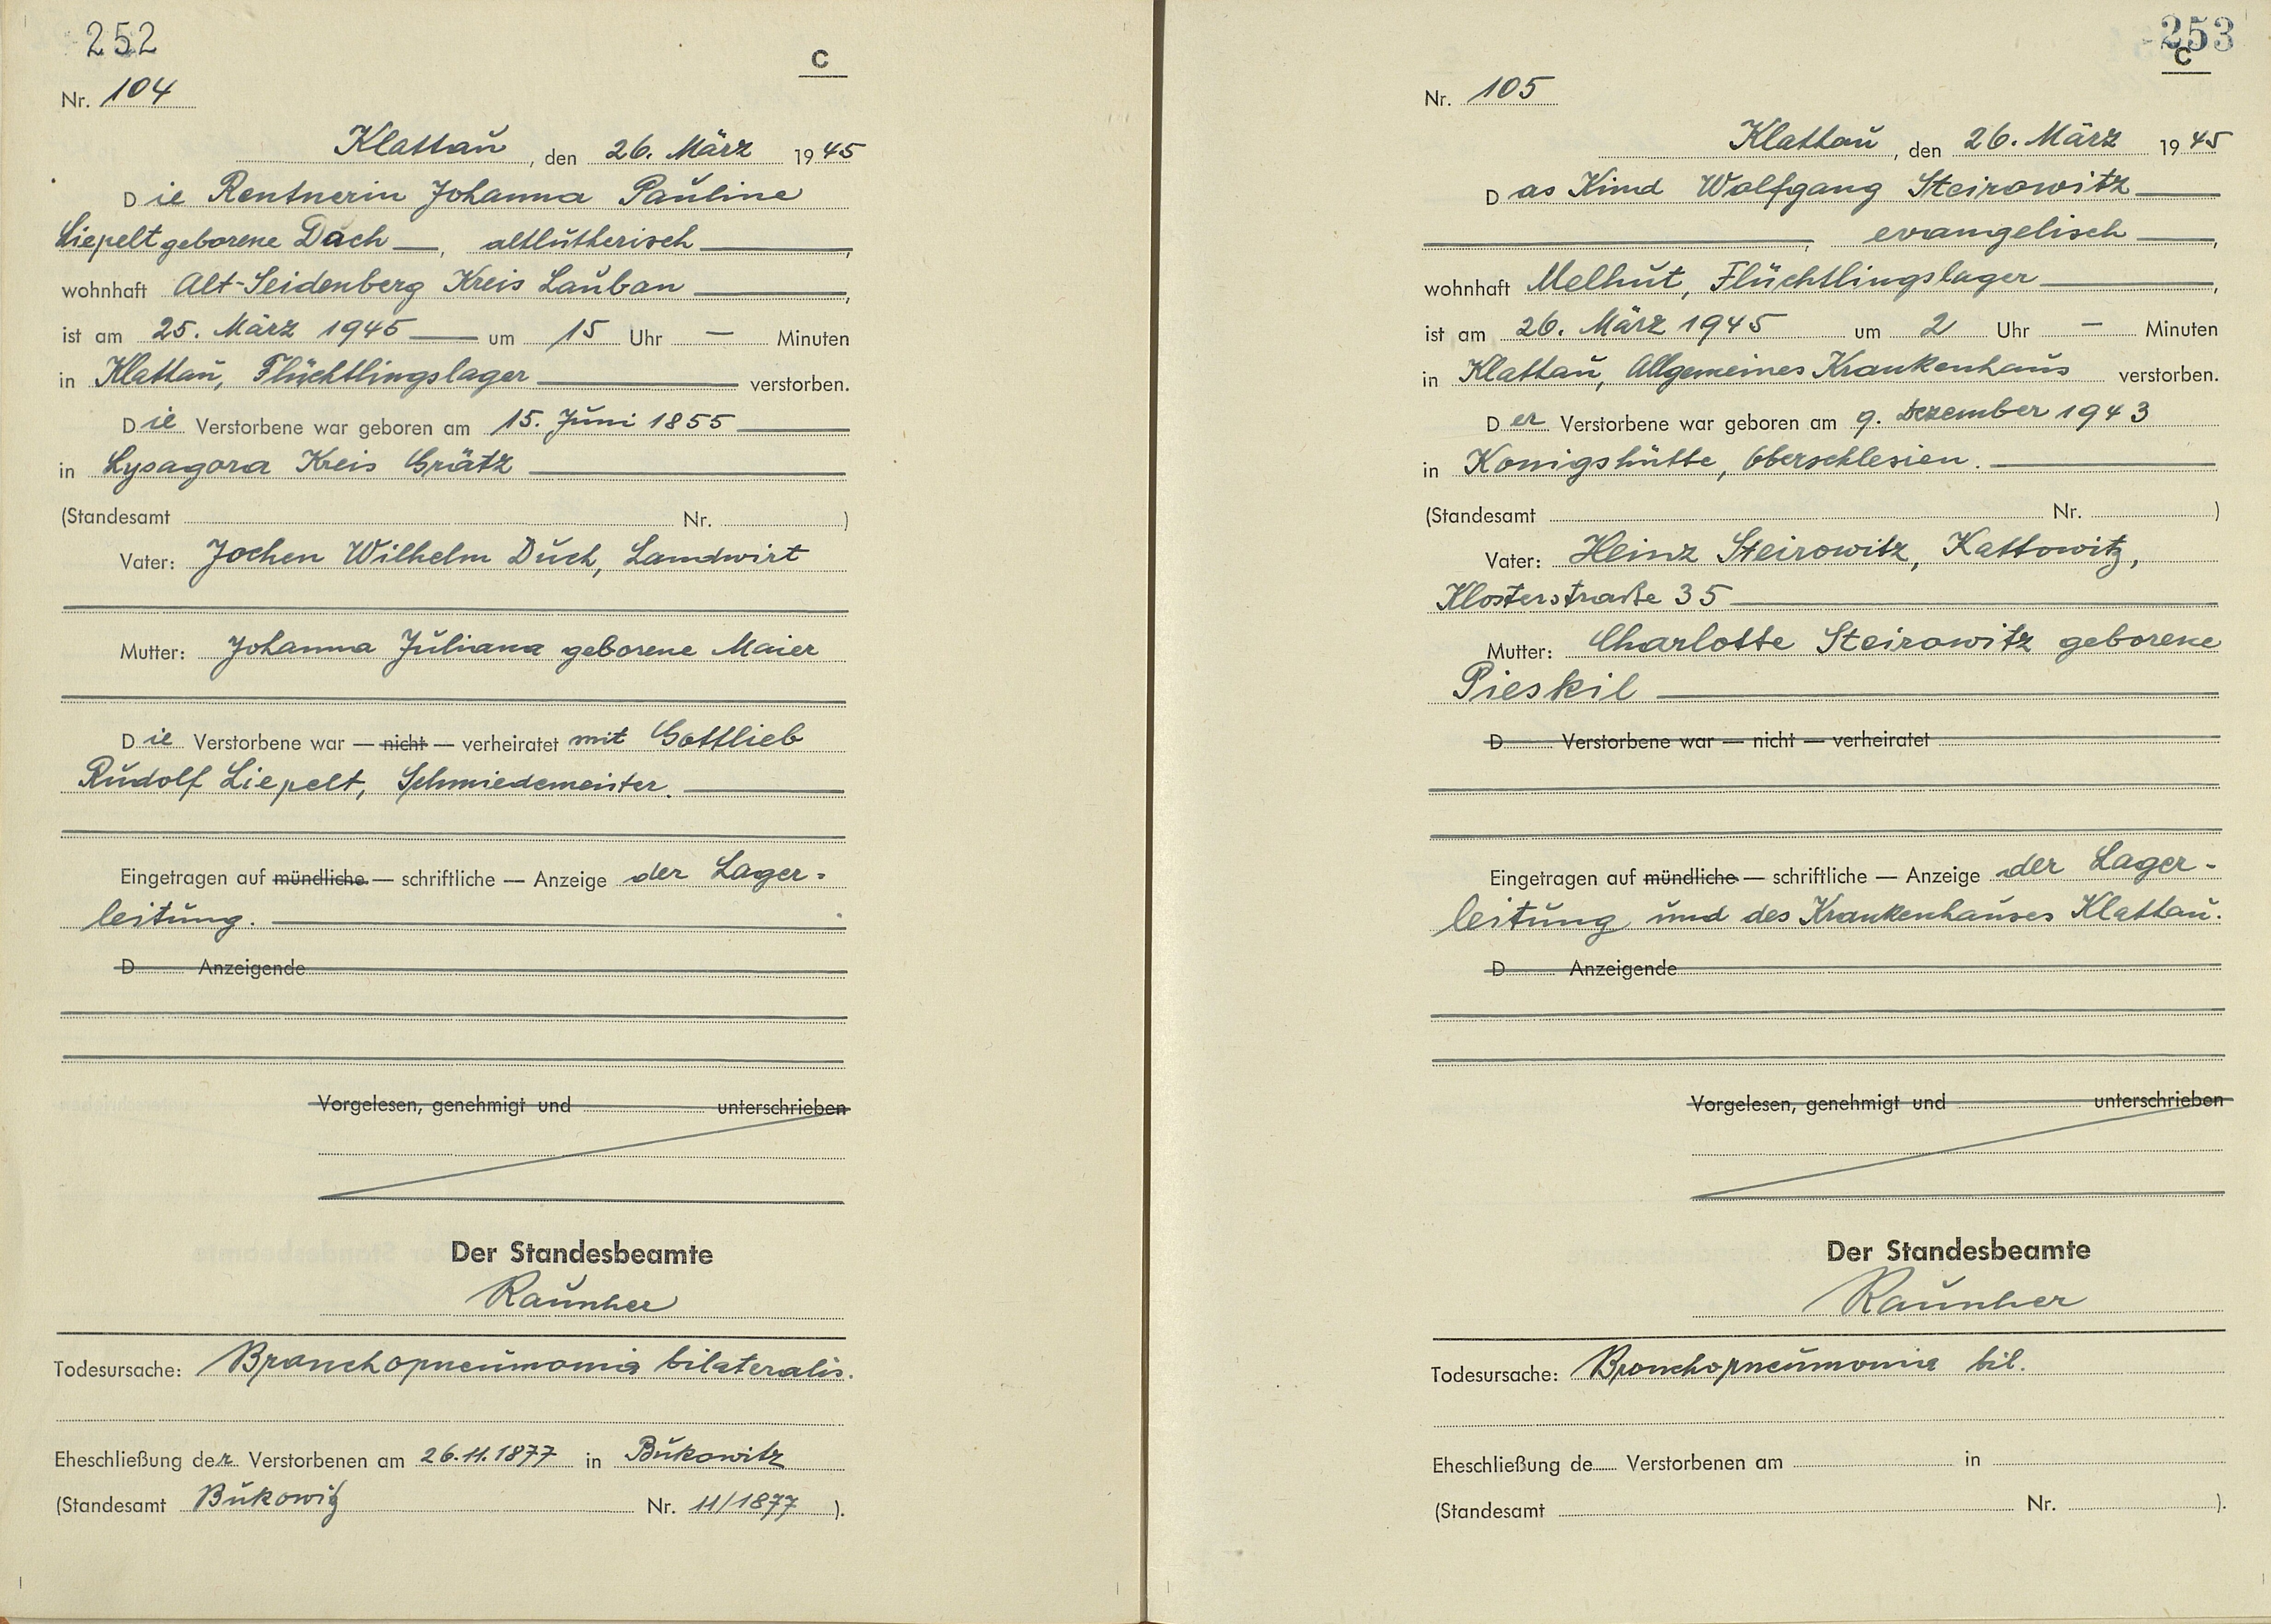 252
C
Nr. 104
Klattau, den 26. März 1945
Die Rentnerin Johanna Pauline
Liepelt geborene Dach —, altlutherisch —,
wohnhaft Alt-Seidenberg Kreis Lauban —,
ist am 25. März 1945 — um 15 Uhr — Minuten
in Klattau, Flüchtlingslager — verstorben.
Die Verstorbene war geboren am 15. Juni 1855 —
in Lysagora Kreis Grätz —
(Standesamt Nr. )
Vater: Jochen Wilhelm Duch, Landwirt
Mutter: Johanna Juliana geborene Maier
Die Verstorbene war — nicht — verheiratet mit Gottlieb
Rudolf Liepelt, Schmiedemeister.
Eingetragen auf mündliche — schriftliche — Anzeige der Lager-
leitung.
D Anzeigende
Vorgelesen, genehmigt und unterschrieben
Der Standesbeamte
Raunher
Todesursache: Bronchopneumonia bilateralis.
Eheschließung der Verstorbenen am 26.11.1877 in Bukowitz
(Standesamt Bukowitz Nr. 11/1877 ).
253
C
Nr. 105
Klattau, den 26. März 1945
Das Kind Wolfgang Steirowitz —
—, evangelisch —,
wohnhaft Melhut, Flüchtlingslager —,
ist am 26. März 1945 um 2 Uhr — Minuten
in Klattau, Allgemeines Krankenhaus verstorben.
Der Verstorbene war geboren am 9. Dezember 1943
in Konigshütte, Oberschlesien. —
(Standesamt Nr. )
Vater: Heinz Steirowitz, Kattowitz,
Klosterstraße 35 —
Mutter: Charlotte Steirowitz geborene
Pieskil —
D Verstorbene war — nicht — verheiratet
Eingetragen auf mündliche — schriftliche — Anzeige der Lager-
leitung und des Krankenhauses Klattau.
D Anzeigende
Vorgelesen, genehmigt und unterschrieben
Der Standesbeamte
Raunher
Todesursache: Bronchopneumonia bil.
Eheschließung de Verstorbenen am in
(Standesamt Nr. ).